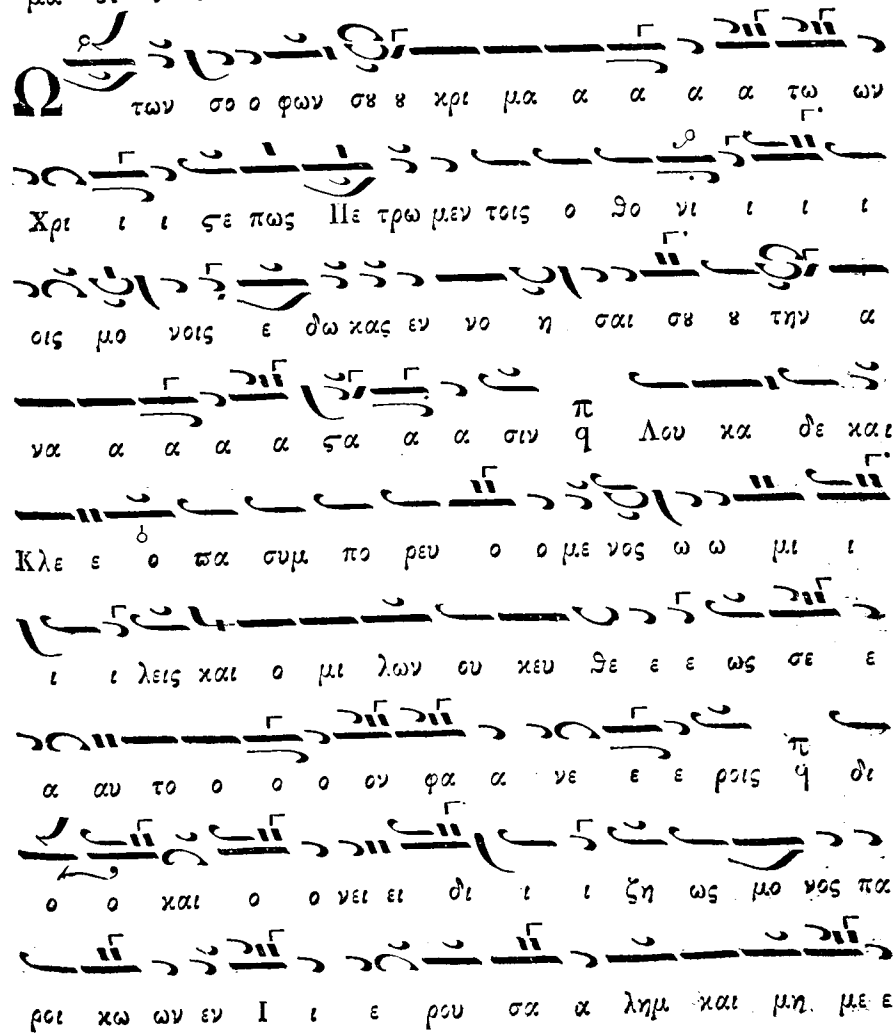 μα ει ν
Ω των σο ο φων σȣ ȣ κρι μα α α α α τω ων
Χρι ι ι ϛε πως Πε τρω μεν τοις ο θο νι ι ι ι
οις μο νοις ε δω κας εν νο η σαι σȣ ȣ την α
να α α α α ϛα α α σιν π q Λου κα δε και
Κλε ε ο πα συμ πο ρευ ο ο με νος ω ω μι ι
ι ι λεις και ο μι λων ου κευ θε ε ε ως σε ε
α αυ το ο ο ο ον φα α νε ε ε ροις π q δι
ο ο και ο ο νει ει δι ι ι ζη ως μο νος πα
ροι κω ων εν Ι ι ε ρου σα α λημ και μη με ε